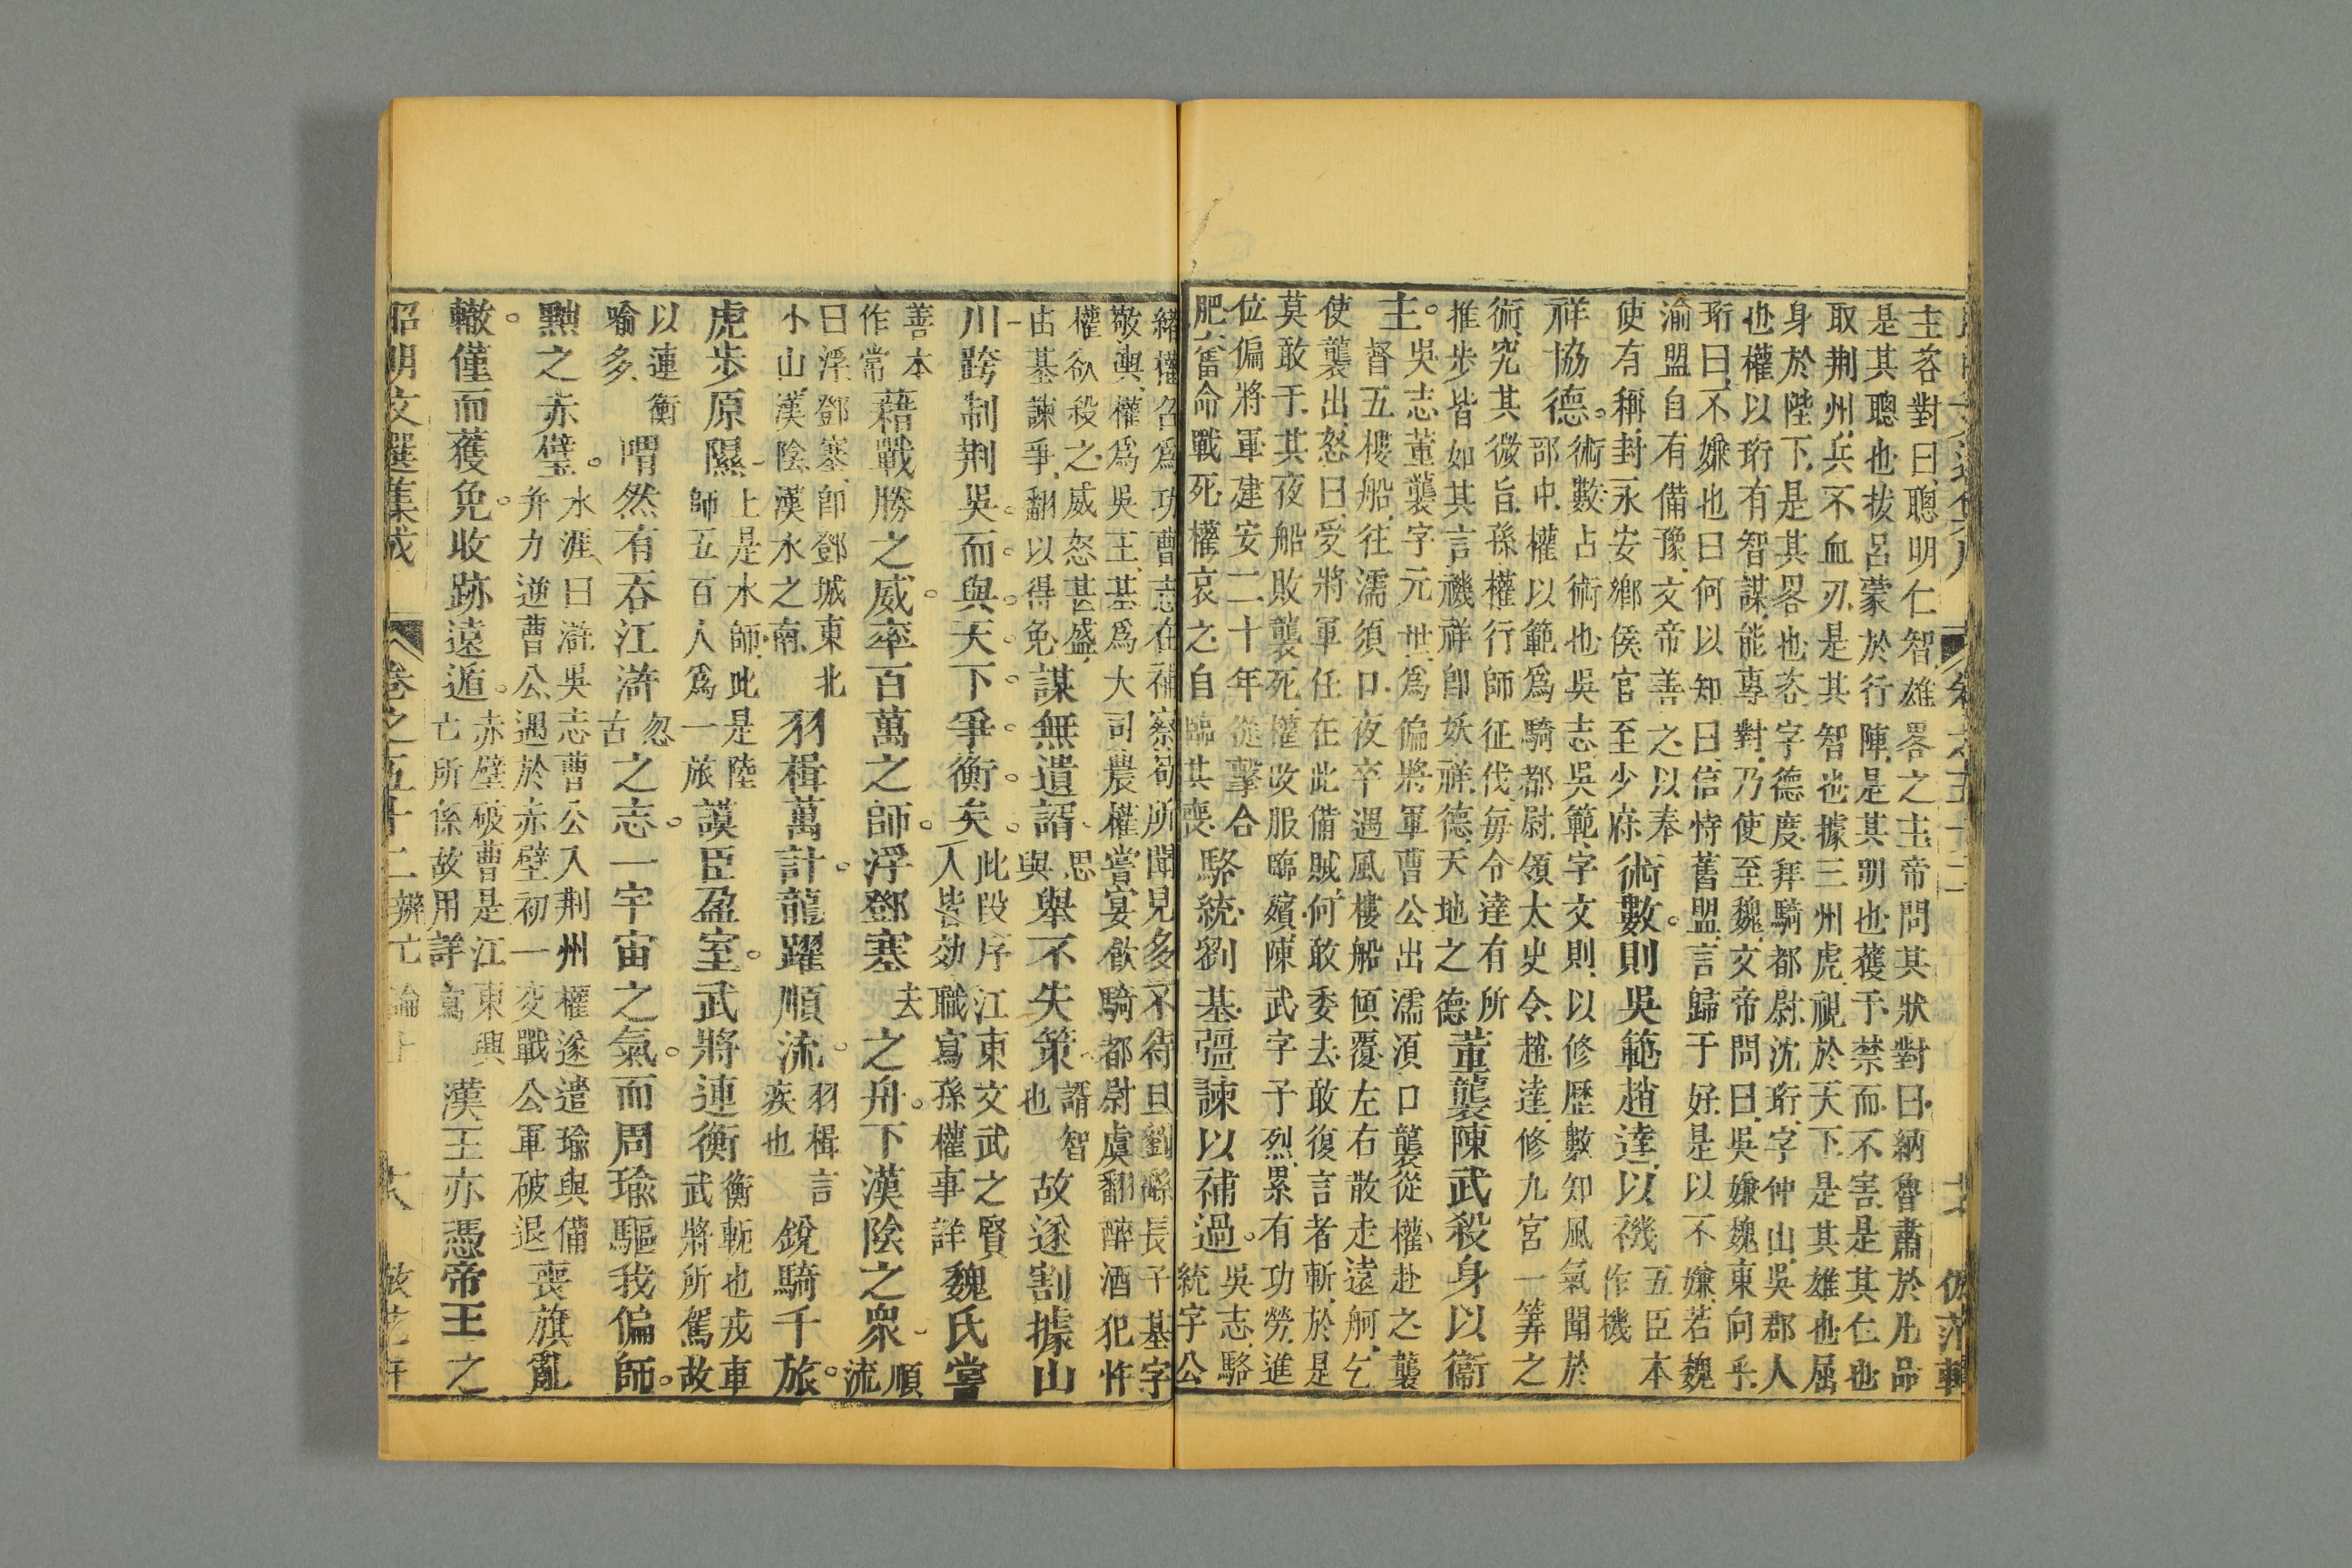 主咨對曰聰明仁智雄畧之主帝問其狀對曰納魯肅於凡品
是其聰也拔呂蒙於行陣是其明也獲于禁而不害是其仁也
取荆州兵不血刃是其智也據三州虎視於天下是其雄也屈
身於陛下是其畧也咨字德度拜騎都尉沈珩字仲山吳郡人
也權以珩有智謀能專對乃使至魏文帝問曰吳嫌魏東向乎
珩曰不嫌也曰何以知曰信恃舊盟言歸于好是以不嫌若魏
渝盟自有備豫文帝善之以奉
使有稱封永安鄉侯官至少府
術數則吳範趙達以禨
五臣本
作機
祥協德
術數占術也吳志吳範字文則以修歷數知風氣聞於
部中權以範爲騎都尉領太史令趙達修九宮一筭之
術究其微旨孫權行師征伐每令達有所
推步皆如其言禨祥卽妖祥德天地之德
董襲陳武殺身以衞
主
吳志董襲字元世爲偏將軍曹公出濡湏口襲從權赴之襲
督五樓船往濡須口夜卒遇風樓船傾覆左右散走遠舸乞
使襲出怒曰受將軍任在此備賊何敢委去敢復言者斬於是
莫敢于其夜船敗襲死權改服臨殯陳武字子烈累有功勞進
位偏將軍建安二十年從擊合
肥奮命戰死權哀之自臨其喪
駱統劉基彊諫以補過
吳志駱
統字公
緒權召爲功曹志在補察苟所聞見多不待旦劉繇長子基字
敬輿權爲吳王基爲大司農權嘗宴飲騎都尉虞翻醉酒犯忤
權欲殺之威怒甚盛
由基諫爭翻以得免
謀無遺諝
思
與
舉不失策
諝智
也
故遂割據山
川跨制荆吳而與天下爭衡矣
此段序江東文武之賢
人皆効職寫孫權事詳
魏氏嘗
善本
作常
藉戰勝之威率百萬之師浮鄧塞
去
之舟下漢陰之衆
順
流
曰浮鄧塞卽鄧城東北
小山漢陰漢水之南
羽楫萬計龍躍順流
羽楫言
疾也
銳騎千旅
虎步原隰
上是水師此是陸
師五百人爲一旅
謨臣盈室武將連衡
衡軛也戎車
武將所駕故
以連衡
喻多
喟然有吞江滸
忽
古
之志一宇宙之氣而周瑜驅我偏師
黜之赤壁
水涯曰滸吳志曹公入荆州權遂遣瑜與備
并力逆曹公遇於赤壁初一交戰公軍破退
喪旗亂
轍僅而獲免收跡遠遁
赤壁破曹是江東興
亡所係故用詳寫
漢王亦憑帝王之
昭明文選集成 卷之五十二辨亡論上